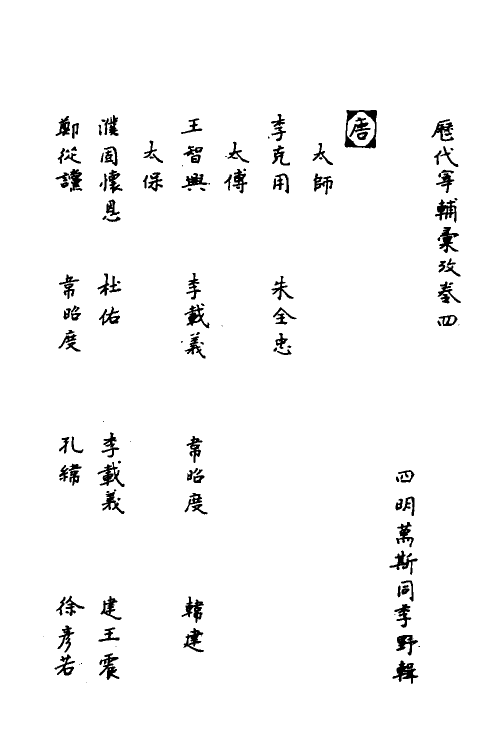 歷代宰輔彙攷卷四
四明萬斯同季野輯
唐
太師
李克用 朱全忠
太傅
王智興 李載義 韋昭度 韓建
太保
濮固懷恩 杜佑 李載義 建王震
鄭從讜 韋昭度 孔緯 徐彥若